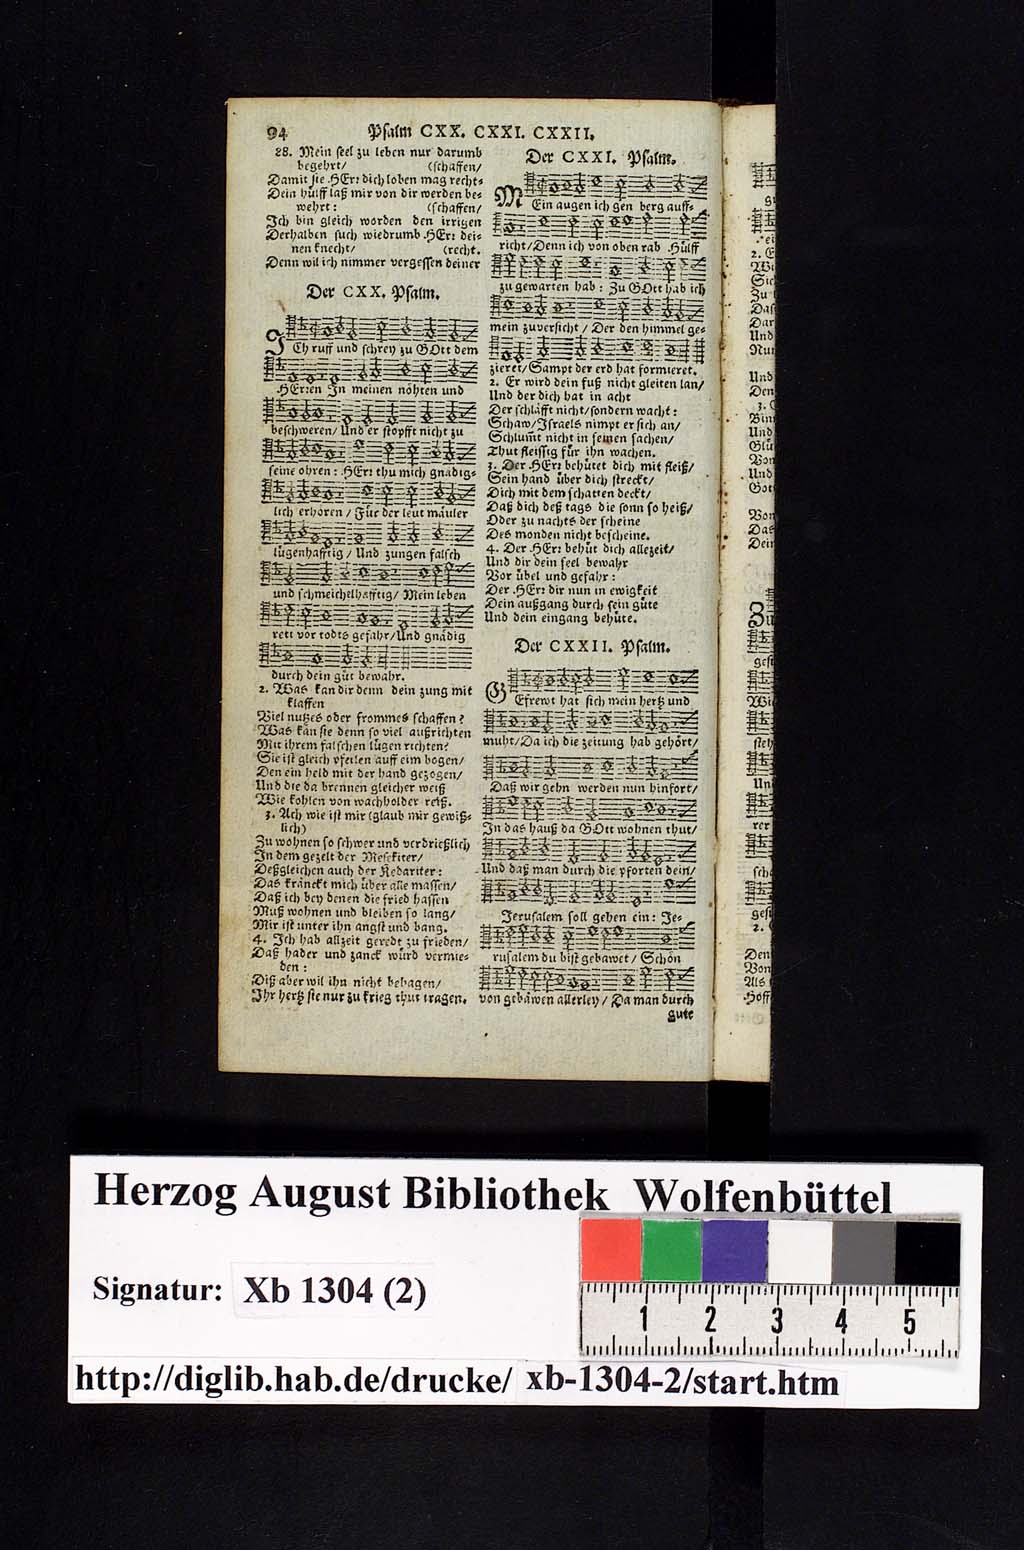 94 Psalm CXX. CXXI. CXXII.
28. Mein seel zu leben nur darumb
begehrt/ (schaffen/
Damit sie HErr dich loben mag recht-
Dein hülff laß mir von dir werden be-
wehrt: (schaffen/
Ich bin gleich worden den irrigen
Derhalben such wiedrumb HErr dei-
nen knecht/ (recht.
Denn wil ich nimmer vergessen deiner
Der CXX. Psalm.
ICh ruff und schrey zu GOtt dem
HErren In meinen nöhten und
beschweren/ Und er stopfft nicht zu
seine ohren: HErr thu mich gnädig-
lich erhören / Für der leut mäuler
lügenhafftig / Und zungen falsch
und schmeichelhafftig/ Mein leben
rett vor todts gefahr/ Und gnädig
durch dein güt bewahr.
2. Was kan dir denn dein zung mit
klaffen
Viel nutzes oder frommes schaffen?
Was kan sie denn so viel außrichten
Mit ihrem falschen lügen richten?
Sie ist gleich pfeilen auff eim bogen/
Den ein held mit der hand gezogen/
Und die da brennen gleicher weiß
Wie kohlen von wacholder reiß.
3. Ach wie ist mir (glaub mir gewiß-
lich)
Zu wohnen so schwer und verdrießlich
In dem gezelt der Mesekiter/
Deßgleichen auch der Kedariter:
Das kränckt mich über alle massen/
Daß ich bey denen die fried hassen
Muß wohnen und bleiben so lang/
Mir ist unter ihn angst und bang.
4. Ich hab allzeit geredt zu frieden/
Daß hader und zanck würd vermie-
den:
Diß aber wil ihn nicht behagen/
Ihr hertz sie nur zu krieg thut tragen.
Der CXXI. Psalm.
MEin augen ich gen berg auff-
richt/ Denn ich von oben rab Hülff
zu gewarten hab: Zu GOtt hab ich
mein zuversicht / Der den himmel ge-
zieret/ Sampt der erd hat formieret.
2. Er wird dein fuß nicht gleiten lan/
Und der dich hat in acht
Der schläfft nicht/ sondern wacht:
Schaw/ Israels nimpt er sich an/
Schlumt nicht in seinen sachen/
Thut fleissig für ihn wachen.
3. Der HErr behütet dich mit fleiß/
Sein hand über dich streckt/
Dich mit dem schatten deckt/
Daß dich deß tags die sonn so heiß/
Oder zu nachts der scheine
Des monden nicht bescheine.
4. Der HErr behüt dich allezeit/
Und dir dein seel bewahr
Vor übel und gefahr:
Der HErr dir nun in ewigkeit
Dein außgang durch sein güte
Und dein eingang behüte.
Der CXXII. Psalm.
GEfrewt hat sich mein hertz und
muht/ Da ich die zeitung hab gehört/
Daß wir gehn werden nun hinfort/
In das hauß da GOtt wohnen thut/
Und daß man durch die pforten dein/
Jerusalem soll gehen ein: Je-
rusalem du bist gebawet/ Schön
von gebäwen allerley/ Da man durch
gute
Herzog August Bibliothek Wolfenbüttel
Signatur: Xb 1304 (2)
1 2 3 4 5
http://diglib.hab.de/drucke/ xb-1304-2/start.htm